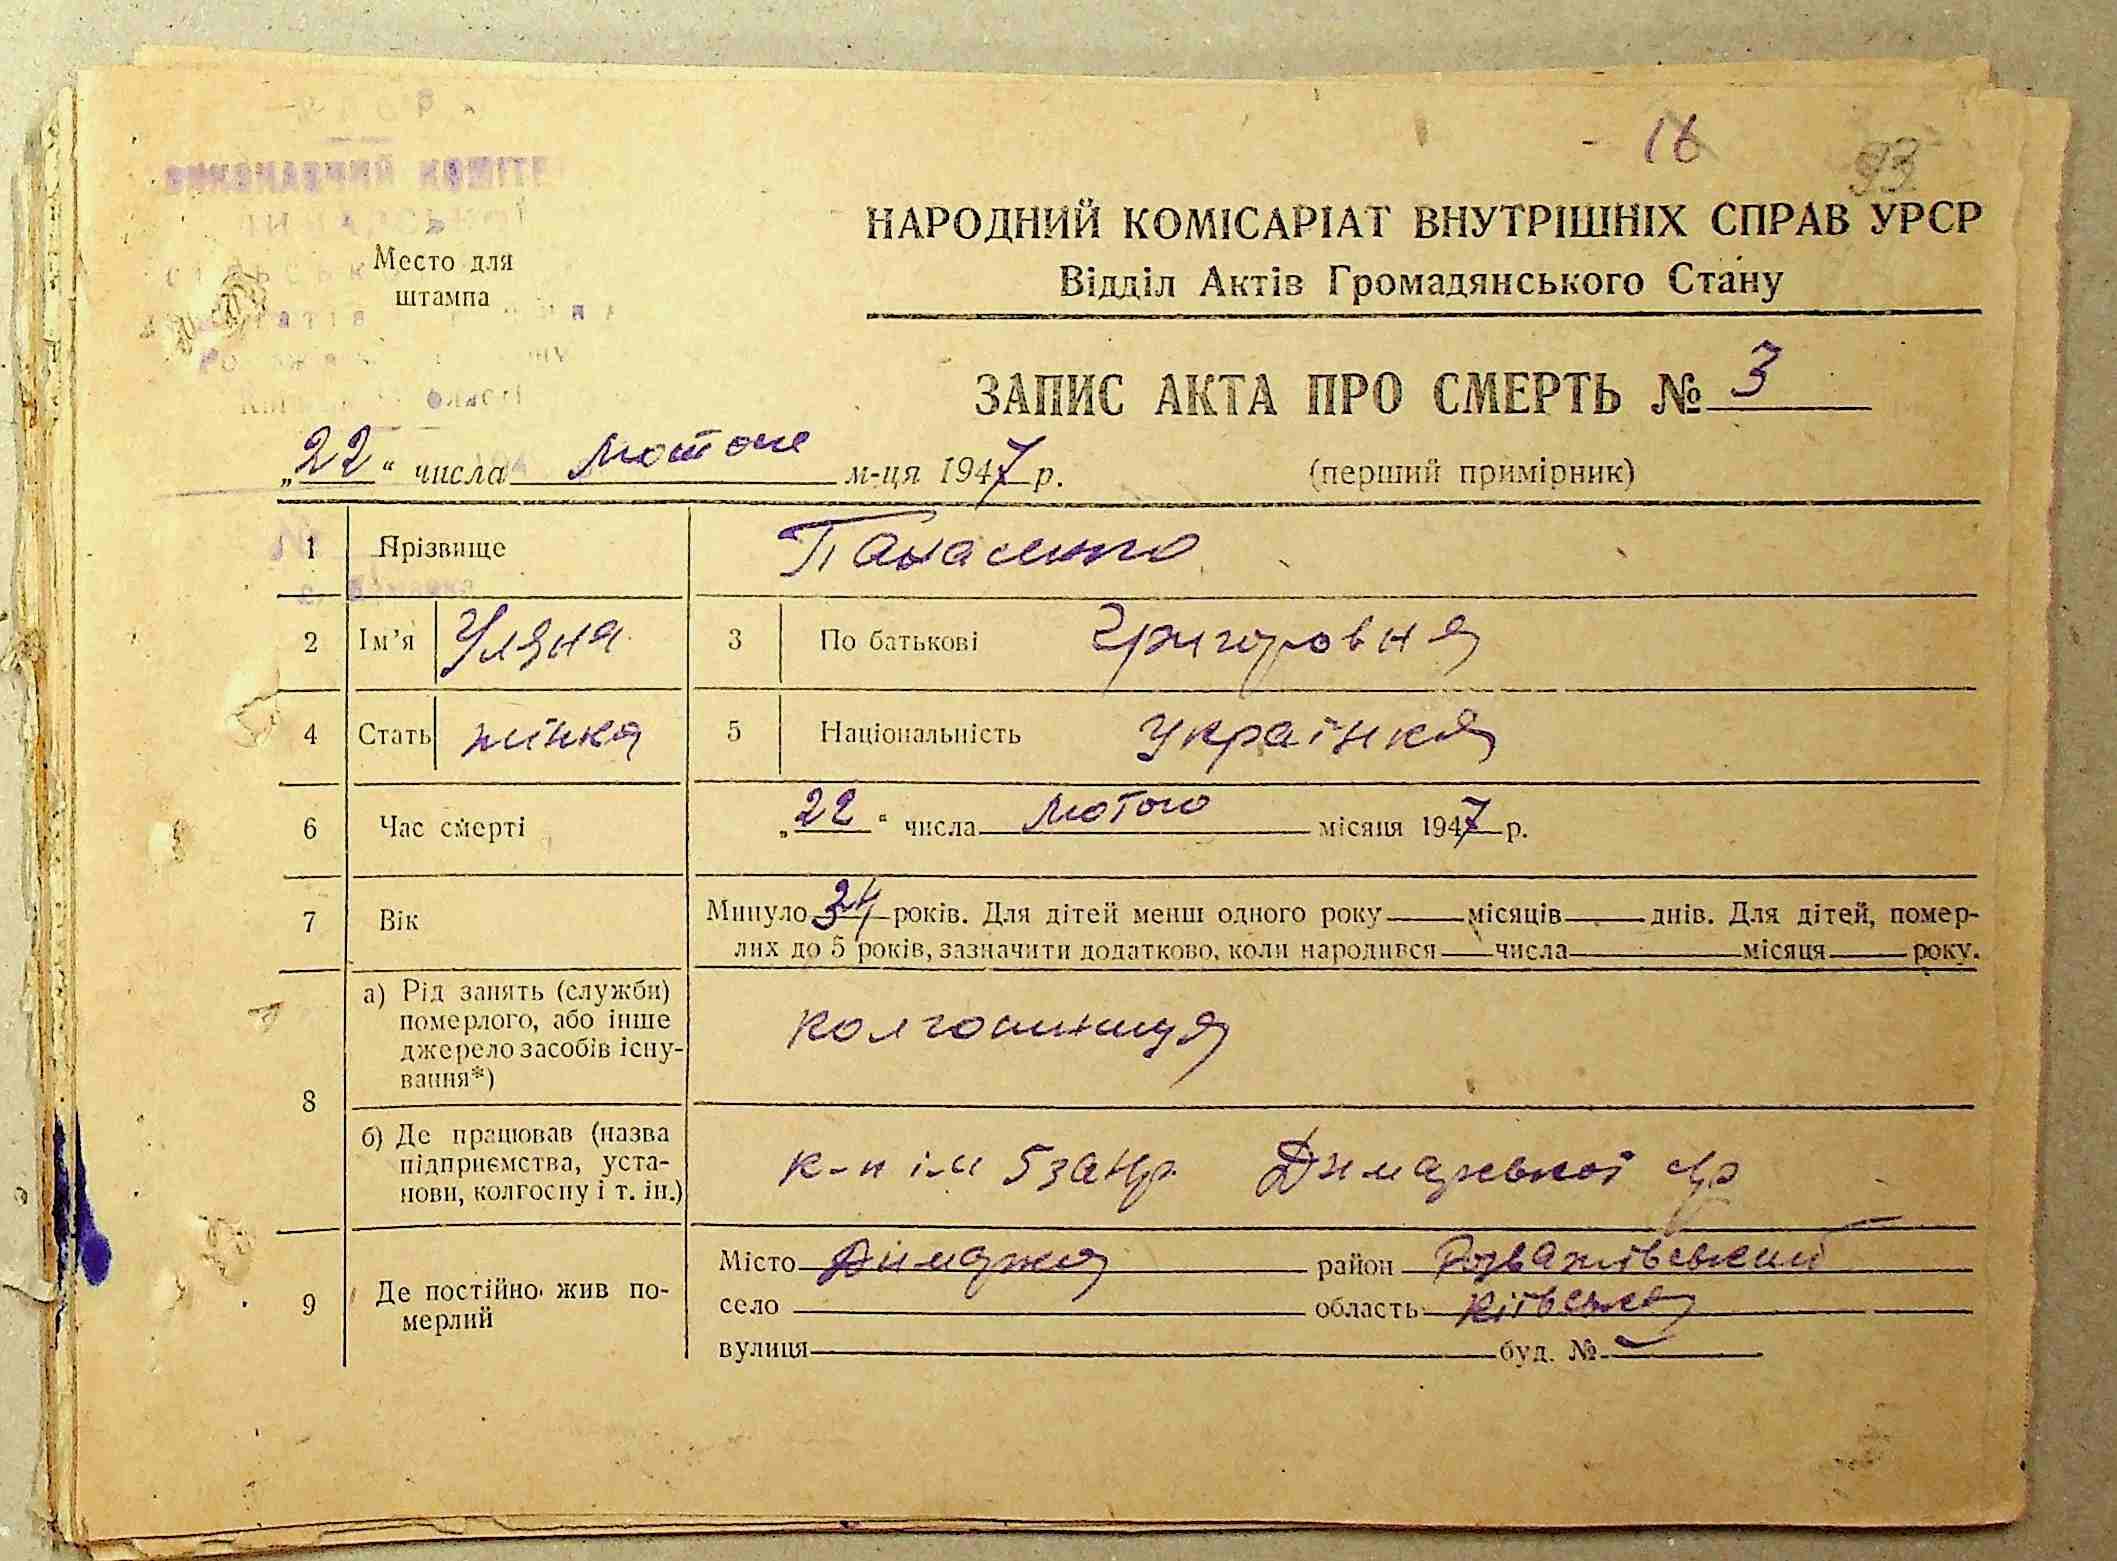 16
93
НАРОДНИЙ КОМІСАРІАТ ВНУТРІШНІХ СПРАВ УРСР
Відділ Актів Громадянського Стану
Место для
штампа
ЗАПИС АКТА ПРО СМЕРТЬ № 3
„22“ числа м-ця 1947 р. (перший примірник)
1 Прізвище Панасенко
2 Ім'я Уляна 3 По батькові Григоровна
4 Стать жінка 5 Національність українка
6 Час смерті „22“ числа лютого місяця 1947 р.
7 Вік Минуло 34 років. Для дітей менш одного року — місяців — днів. Для дітей, помер-
лих до 5 років, зазначити додатково, коли народився — числа — місяця — року.
8 а) Рід занять (служби)
померлого, або інше
джерело засобів існу-
вання*)
колгоспниця
б) Де працював (назва
підприємства, уста-
нови, колгоспу і т. ін.)
к-п ім
9 Де постійно жив по-
мерлий
Місто район Розважівський
село область Київська
вулиця буд. №